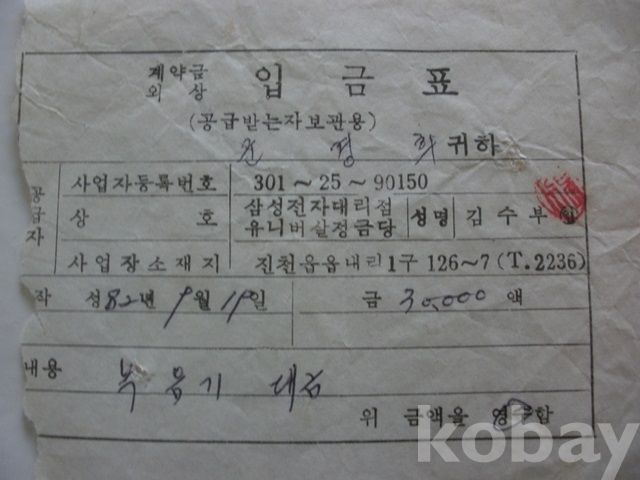 계약금
외 상
입 금 표
(공급받는자보관용)
귀하
공급자
사업자등록번호 301～25～90150
상 호 삼성전자대리점
유니버살정금당
성명 김수부 인
사업장소재지 진천읍읍내리1구 126～7 (T.2236)
작 성 82년 9월 19일 금 30,000 액
내용 녹음기 대금
위 금액을 영수함
kobay